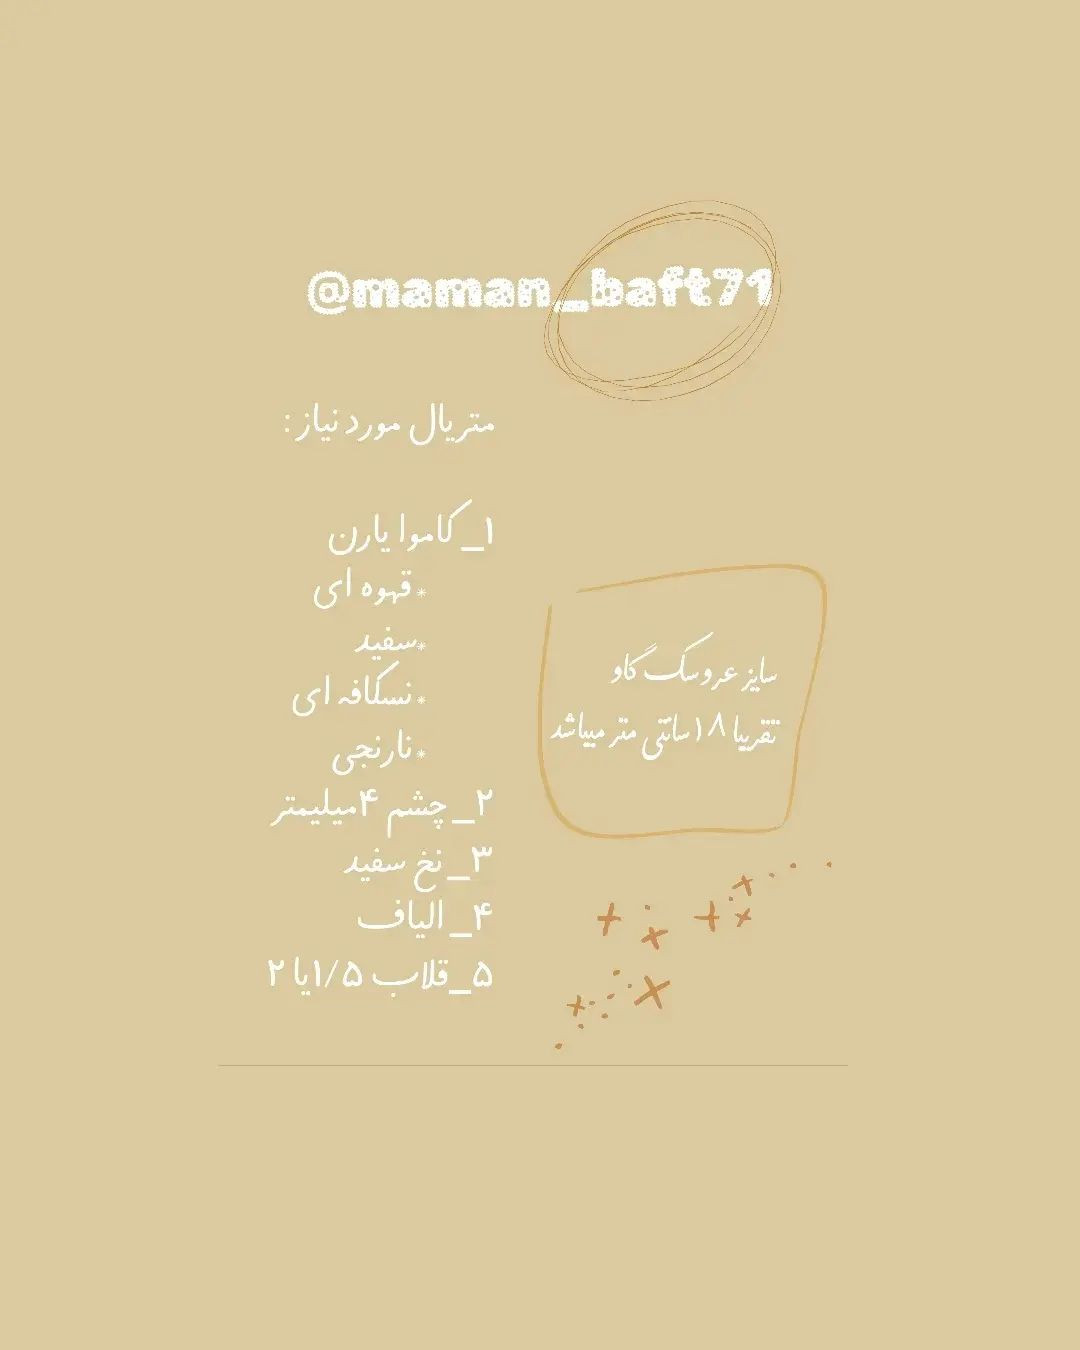 @maman_baft71
متریال مورد نیاز :
۱_ کاموا یارن
*قهوه ای
*سفید
*نسکافه ای
*نارنجی
۲_ چشم ۴میلیمتر
۳_ نخ سفید
۴_ الیاف
۵_قلاب ۱/۵یا ۲
سایز عروسک گاو
تقریبا ۱۸سانتی متر میباشد